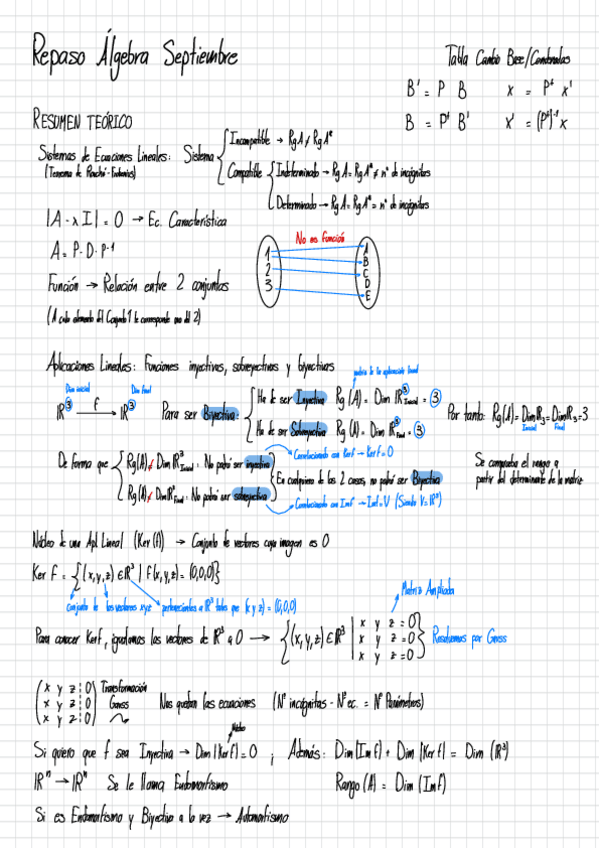 Repaso Álgebra Septiembre
Tabla Cambio Base/Coordenadas
B' = P B    x = Pᵗ x'
B = P⁻¹ B'    x' = (Pᵗ)⁻¹ x
RESUMEN TEÓRICO
Sistemas de Ecuaciones Lineales: Sistema
(Teorema de Rouché-Frobenius)
Incompatible → Rg A ≠ Rg A*
Compatible
Indeterminado → Rg A = Rg A* ≠ nº de incógnitas
Determinado → Rg A = Rg A* = nº de incógnitas
|A - λI| = 0 → Ec. Característica
A = P · D · P⁻¹
Función → Relación entre 2 conjuntos
(A cada elemento del Conjunto 1 le corresponde uno del 2)
No es función
1
2
3
A
B
C
D
E
Aplicaciones Lineales: Funciones inyectivas, sobreyectivas y biyectivas
matriz de la aplicación lineal
Dim inicial    Dim final
ℝ³ f→ ℝ³    Para ser Biyectiva:
Ha de ser Inyectiva Rg (A) = Dim ℝ³ Inicial = 3
Ha de ser Sobreyectiva Rg (A) = Dim ℝ³ Final = 3
Por tanto: Rg(A) = Dim ℝ₃ = Dim ℝ₃ = 3
Inicial    Final
De forma que
Rg(A) ≠ Dim ℝ³ Inicial: No podrá ser inyectiva
Rg(A) ≠ Dim ℝ³ Final: No podrá ser sobreyectiva
Correlacionado con Ker f → Ker f = 0
En cualquiera de los 2 casos, no podrá ser Biyectiva
Correlacionado con Im f → Im f = V (Siendo V = ℝ³)
Se comprueba el rango a
partir del determinante de la matriz
Núcleo de una Apl. Lineal (Ker (f)) → Conjunto de vectores cuya imagen es 0
Ker f = {(x, y, z) ∈ ℝ³ | f(x, y, z) = (0,0,0)}
conjunto de los vectores xyz    pertenecientes a ℝ³ tales que (x y z) = (0,0,0)
Matriz Ampliada
Para conocer Ker f, igualamos los vectores de ℝ³ a 0 → {(x, y, z) ∈ ℝ³ | x y z = 0
x y z = 0
x y z = 0}
Resolvemos por Gauss
(x y z | 0)
(x y z | 0)
(x y z | 0)
Transformación
Gauss
Nos quedan las ecuaciones (Nº incógnitas - Nº ec. = Nº Parámetros)
Núcleo
Si quiero que f sea Inyectiva → Dim (Ker f) = 0 ; Además: Dim (Im f) + Dim (Ker f) = Dim (ℝ³)
ℝⁿ → ℝⁿ Se le llama Endomorfismo    Rango (A) = Dim (Im f)
Si es Endomorfismo y Biyectiva a la vez → Automorfismo